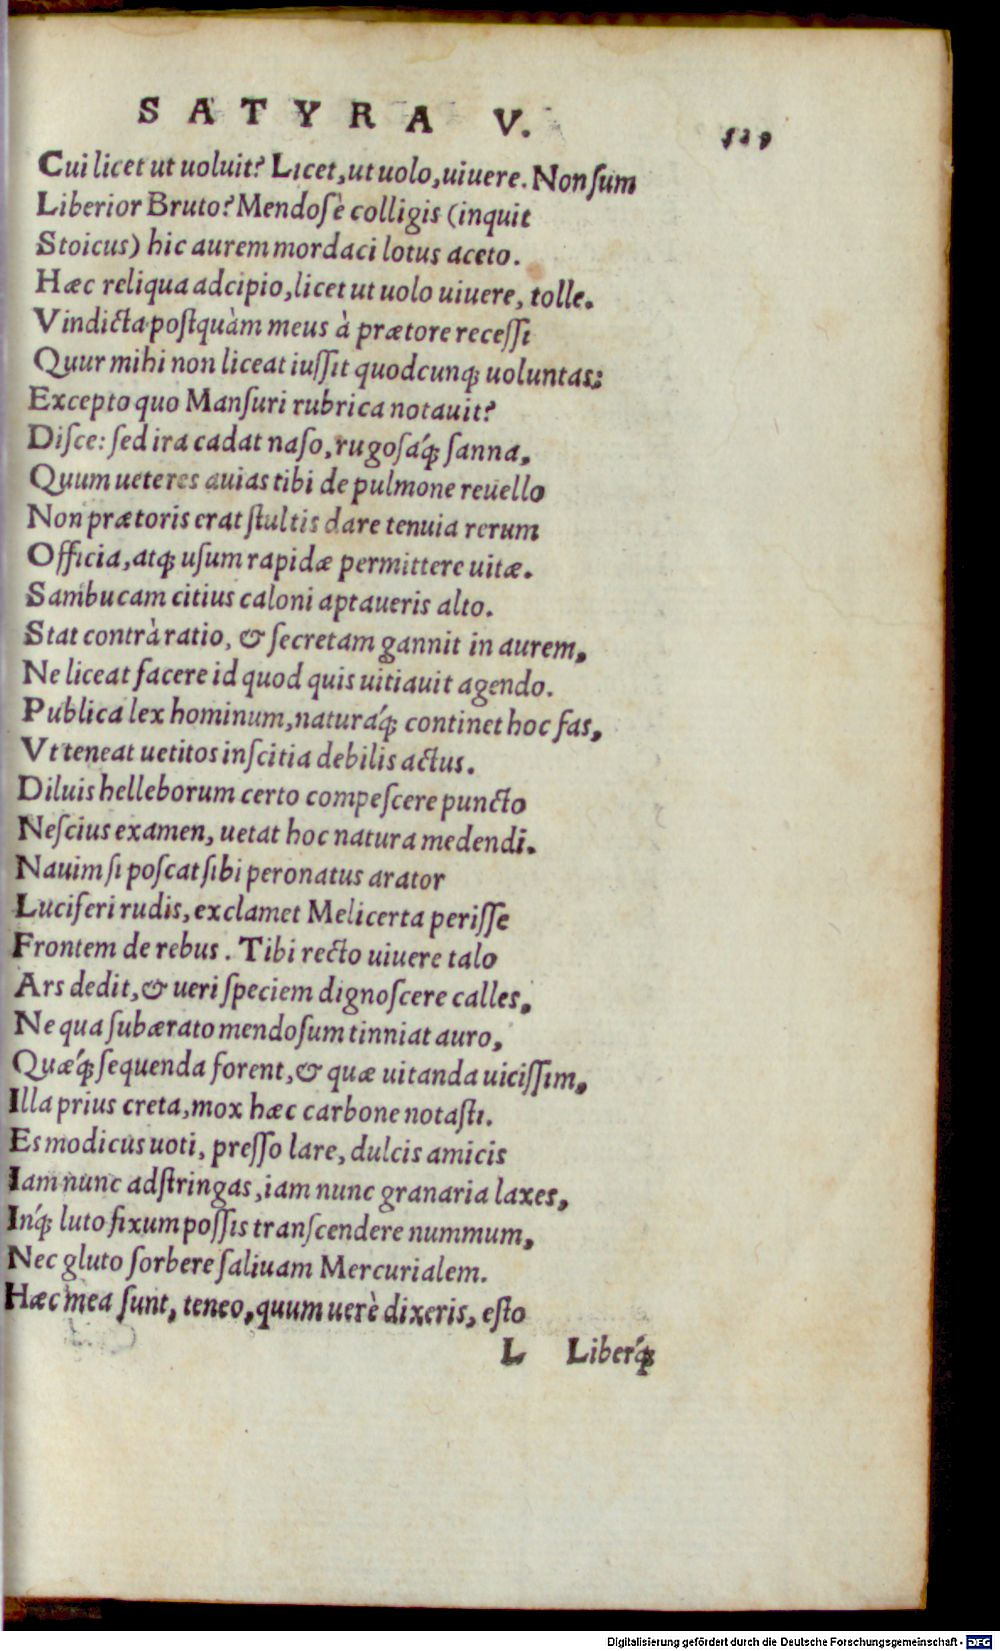 SATYRA V.
529
Cui licet ut uoluit? Licet, ut uolo, uiuere. Non ſum
Liberior Bruto? Mendoſè colligis (inquit
Stoicus) hic aurem mordaci lotus aceto.
Hæc reliqua adcipio, licet ut uolo uiuere, tolle.
Vindicta poſtquàm meus à prætore receſſi
Quur mihi non liceat iuſſit quodcunq; uoluntas:
Excepto quo Manſuri rubrica notauit?
Diſce: ſed ira cadat naſo, rugoſáq; ſanna,
Quum ueteres auias tibi de pulmone reuello
Non prætoris erat ſtultis dare tenuia rerum
Officia, atq; uſum rapidæ permittere uitæ.
Sambucam citius caloni aptaueris alto.
Stat contrà ratio, & ſecretam gannit in aurem,
Ne liceat facere id quod quis uitiauit agendo.
Publica lex hominum, naturáq; continet hoc fas,
Vt teneat uetitos inſcitia debilis actus.
Diluis helleborum certo compeſcere puncto
Neſcius examen, uetat hoc natura medendi.
Nauim ſi poſcat ſibi peronatus arator
Luciferi rudis, exclamet Melicerta periſſe
Frontem de rebus. Tibi recto uiuere talo
Ars dedit, & ueri ſpeciem dignoſcere calles,
Ne qua ſubærato mendoſum tinniat auro,
Quæq́; ſequenda forent, & quæ uitanda uiciſſim,
Illa prius creta, mox hæc carbone notaſti.
Es modicus uoti, preſſo lare, dulcis amicis
Iam nunc adſtringas, iam nunc granaria laxes,
Inq́; luto fixum poſſis tranſcendere nummum,
Nec gluto ſorbere ſaliuam Mercurialem.
Hæc mea ſunt, teneo, quum uerè dixeris, eſto
L Liberq́;
Digitalisierung gefördert durch die Deutsche Forschungsgemeinschaft - DFG